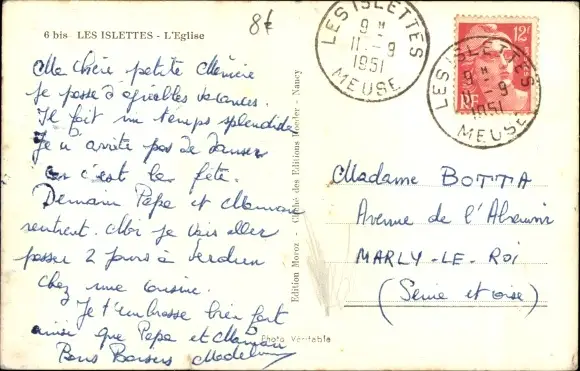 6 bis LES ISLETTES - L'Eglise
8€
Ma chère petite Mémère
Je passe d'agréables vacances.
Il fait un temps splendide
Je n'arrête pas de danser
car c'est la fête.
Demain Papa et Maman
rentrent. Moi je vais aller
passer 2 jours à Verdun
chez une cousine.
Je t'embrasse bien fort
ainsi que Papa et Maman
Bons Baisers
Edition Moroz - Cliché des Editions Nancy
Photo Véritable
LES ISLETTES
9 H
11 - 9
1951
MEUSE
12F
RF
LES ISLETTES
9 H
11 - 9
1951
MEUSE
Madame BOTTA
Avenue de l'Abreuvoir
MARLY-LE-ROI
(Seine et Oise)